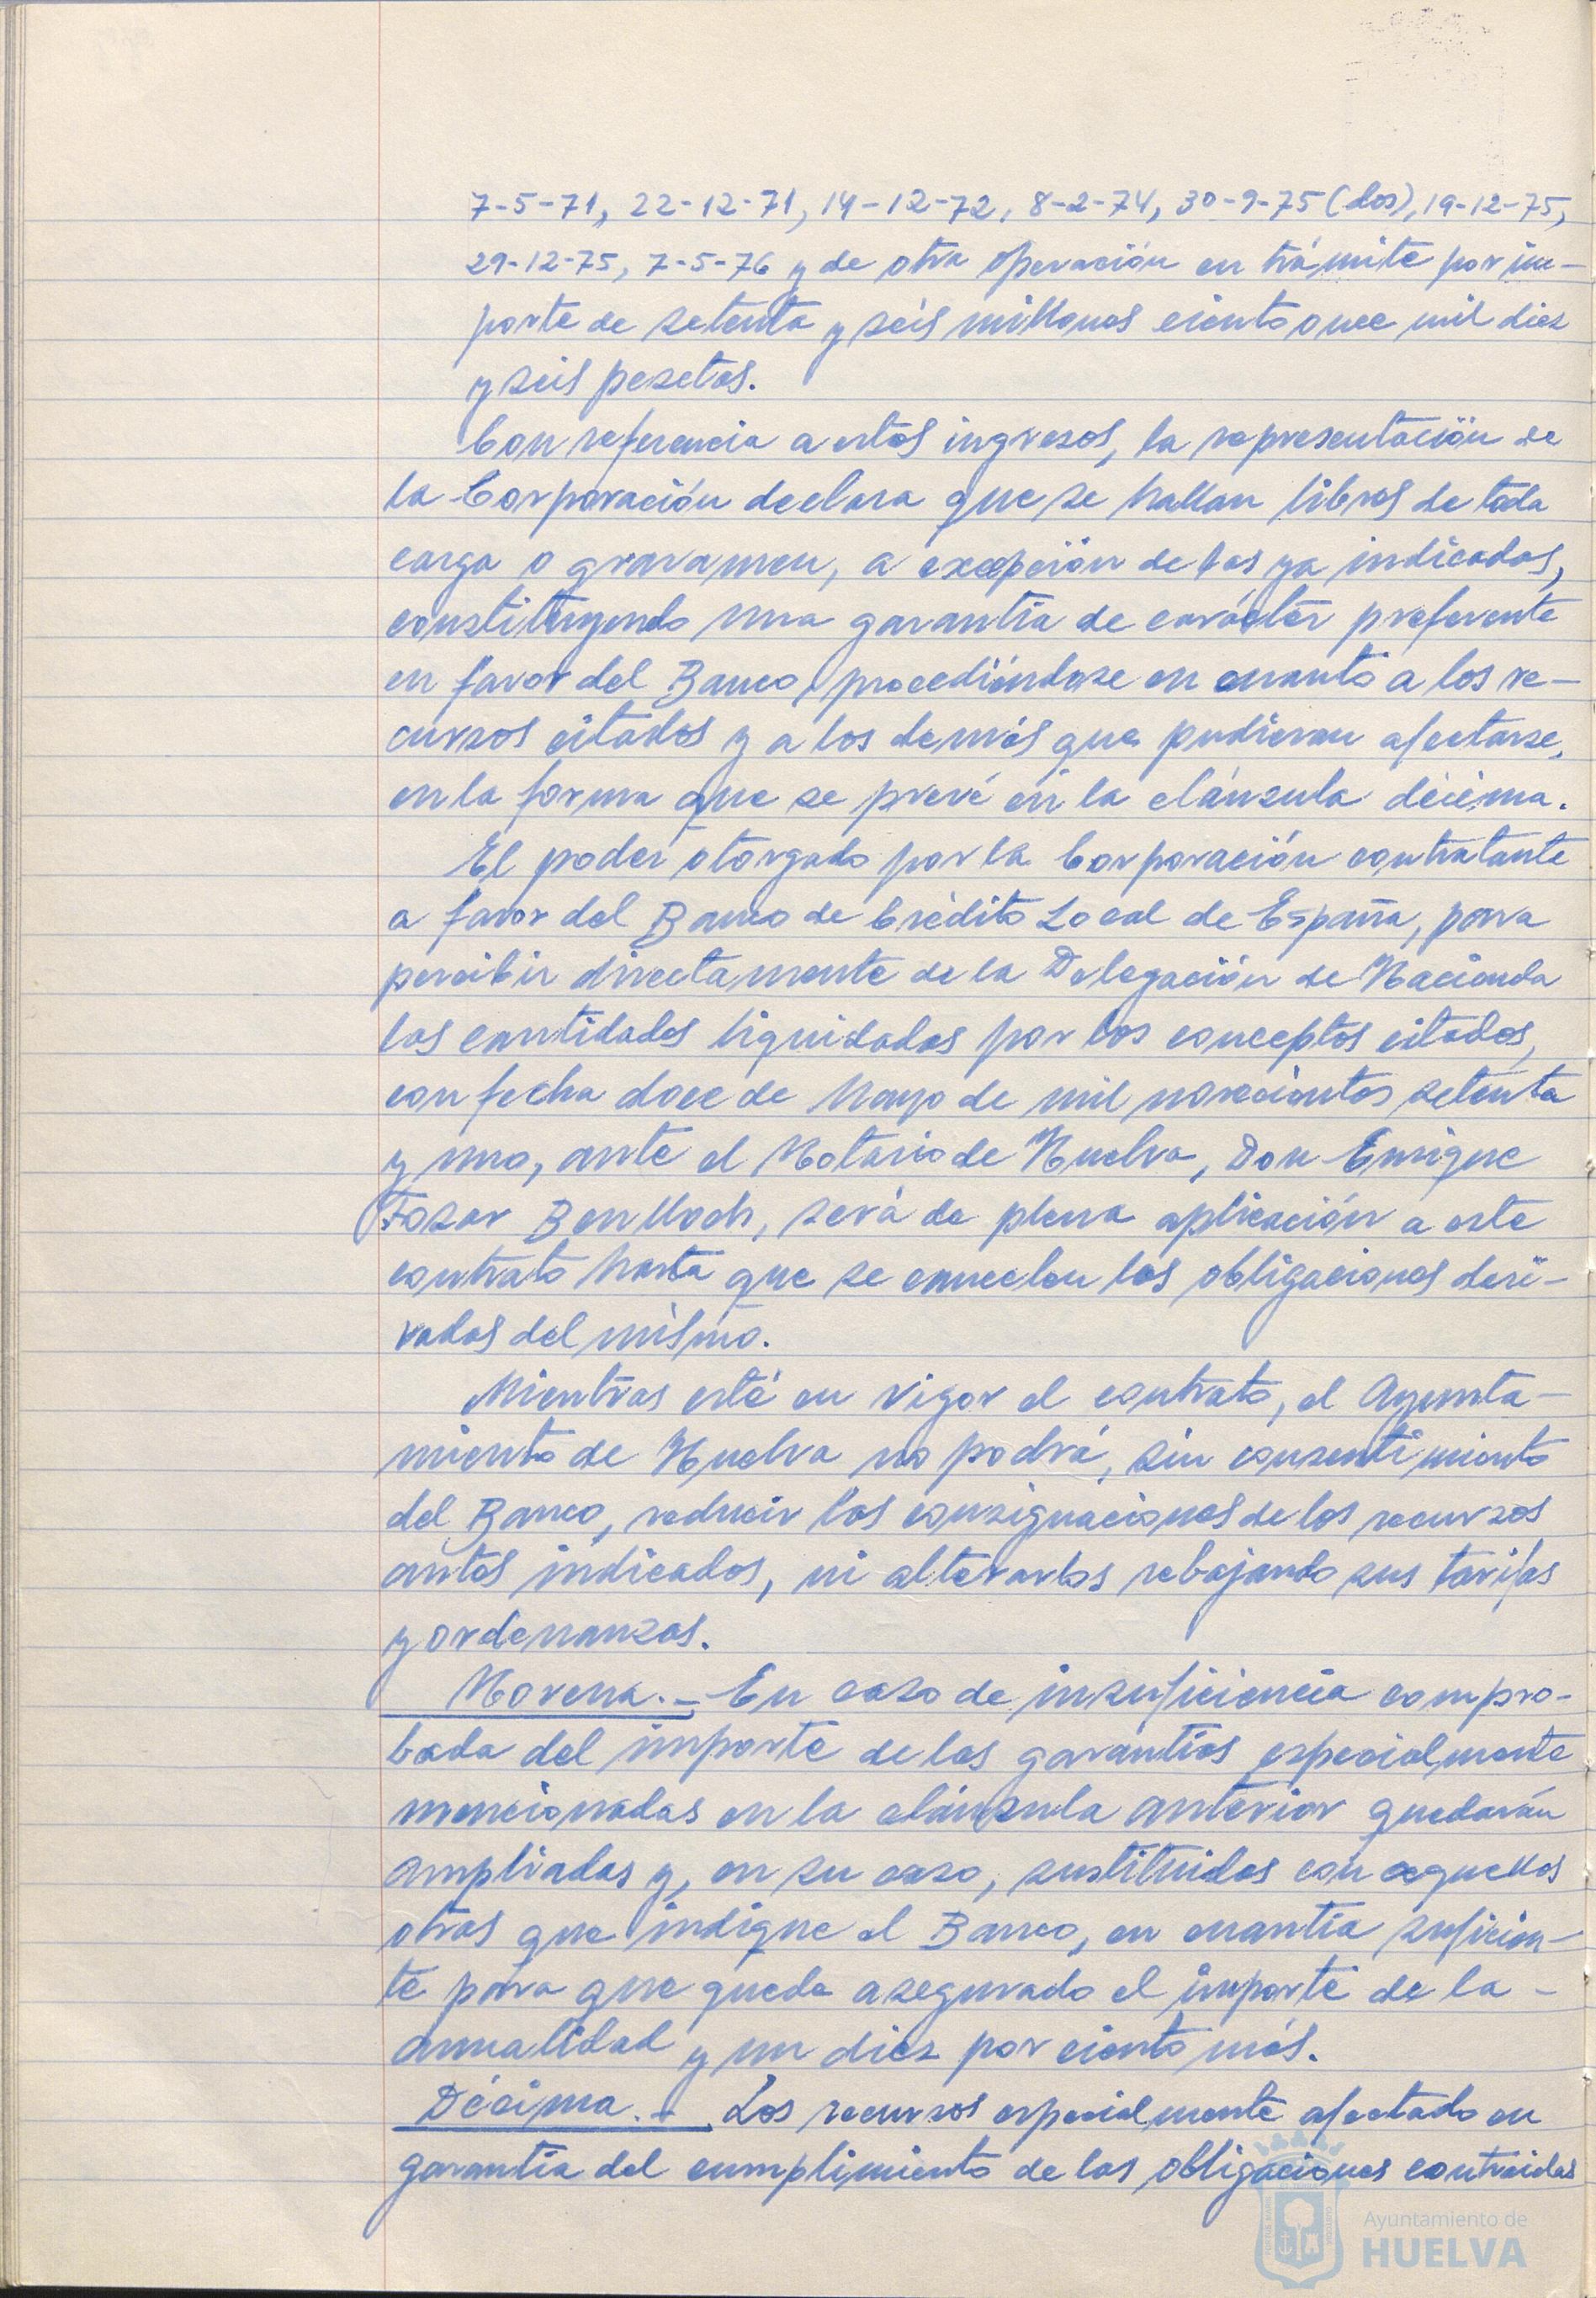 7-5-71, 22-12-71, 14-12-72, 8-2-74, 30-9-75 (dos), 19-12-75,
29-12-75, 7-5-76 y de otra operación en trámite por im-
porte de setenta y seis millones ciento once mil diez
y seis pesetas.
Con referencia a estos ingresos, la representación de
la Corporación declara que se hallan libres de toda
carga o gravamen, a excepción de las ya indicadas,
constituyendo una garantía de carácter preferente
en favor del Banco, procediéndose en cuanto a los re-
cursos citados y a los demás que pudieran afectarse,
en la forma que se prevé en la cláusula décima.
El poder otorgado por la Corporación contratante
a favor del Banco de Crédito Local de España, para
percibir directamente de la Delegación de Hacienda
las cantidades liquidadas por los conceptos citados,
con fecha doce de Mayo de mil novecientos setenta
y uno, ante el Notario de Huelva, Don Enrique
Fosar Benlloch, será de plena aplicación a este
contrato hasta que se cancelen las obligaciones deri-
vadas del mismo.
Mientras esté en vigor el contrato, el Ayunta-
miento de Huelva no podrá, sin consentimiento
del Banco, reducir las consignaciones de los recursos
antes indicados, ni alterarlos rebajando sus tarifas
y ordenanzas.
Novena.- En caso de insuficiencia compro-
bada del importe de las garantías especialmente
mencionadas en la cláusula anterior quedarán
ampliadas y, en su caso, sustituidas con aquellas
otras que indique el Banco, en cuantía suficien-
te para que quede asegurado el importe de la -
anualidad y un diez por ciento más.
Décima.- Los recursos especialmente afectado en
garantía del cumplimiento de las obligaciones contraidas
Ayuntamiento de
HUELVA